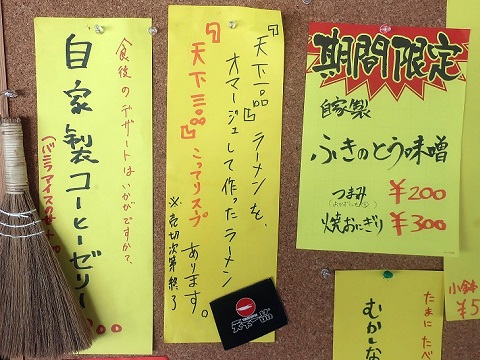 食後のデザートはいかがですか?
自家製コーヒーゼリー
(バニラアイスクリーム
00
『天下一品』ラーメンを、
オマージュして作ったラーメン
『天下三品』こってりスプ
あります。
※売切次第終了
天下一品
期間限定
自家製
ふきのとう味噌
つまみ ¥200
焼おにぎり ¥300
小鉢
¥5
たまにたべ
むかしな